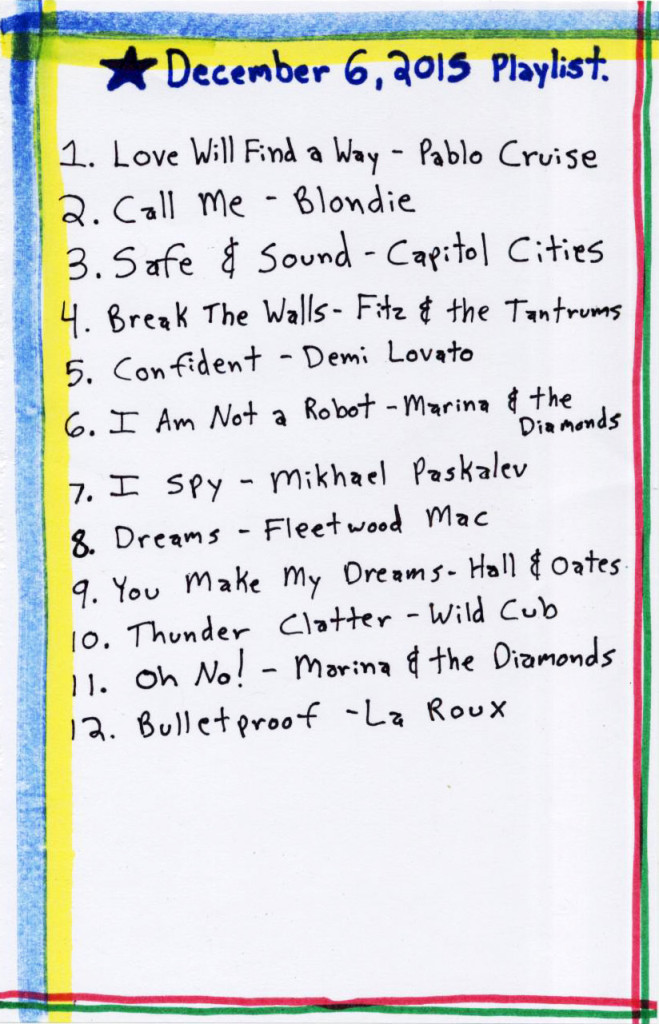 ★ December 6, 2015 Playlist.
1. Love Will Find a Way - Pablo Cruise
2. Call Me - Blondie
3. Safe & Sound - Capitol Cities
4. Break The Walls - Fitz & the Tantrums
5. Confident - Demi Lovato
6. I Am Not a Robot - Marina & the
Diamonds
7. I Spy - Mikhael Paskalev
8. Dreams - Fleetwood Mac
9. You Make My Dreams - Hall & Oates
10. Thunder Clatter - Wild Cub
11. Oh No! - Marina & the Diamonds
12. Bulletproof - La Roux